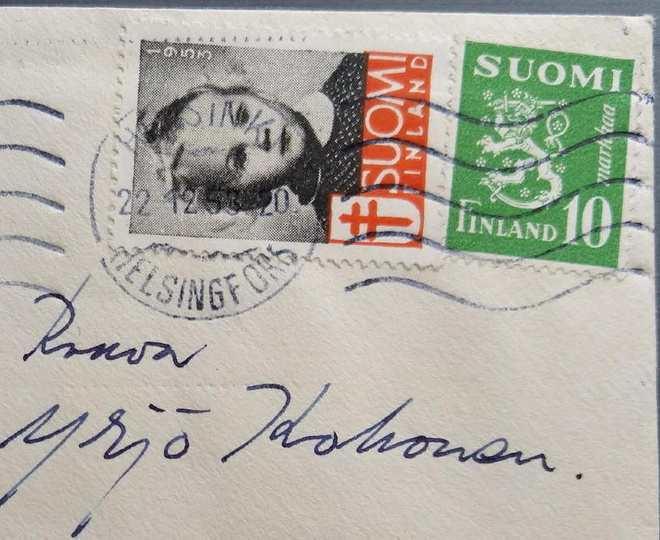 1953
SUOMI
FINLAND
SUOMI
markkaa
FINLAND 10
HELSINKI
22.12.53.20
HELSINGFORS
Rouva
Yrjö Kokonen.